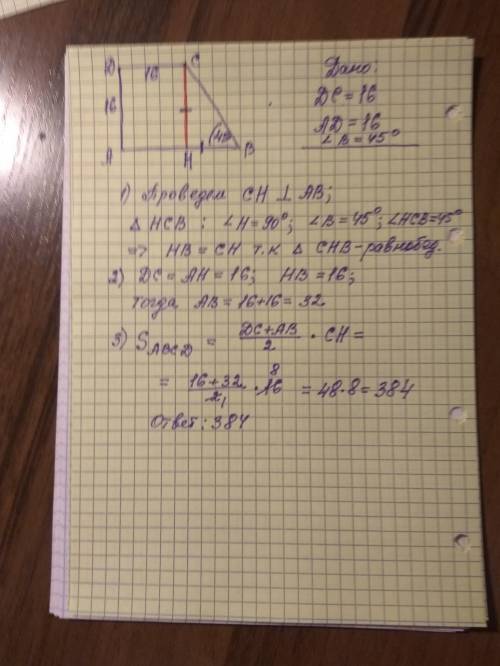 D 16 C
16
A H B
45°
Дано:
DC = 16
AD = 16
∠B = 45°
1) Проведем CH ⊥ AB;
△ HCB : ∠H = 90°; ∠B = 45°; ∠HCB = 45°
=> HB = CH т.к △ CHB - равнобед.
2) DC = AH = 16; HB = 16;
тогда AB = 16+16 = 32
3) S_ABCD = (DC+AB)/2 · CH =
= (16+32)/2 1 · 16 8 = 48·8 = 384
Ответ: 384